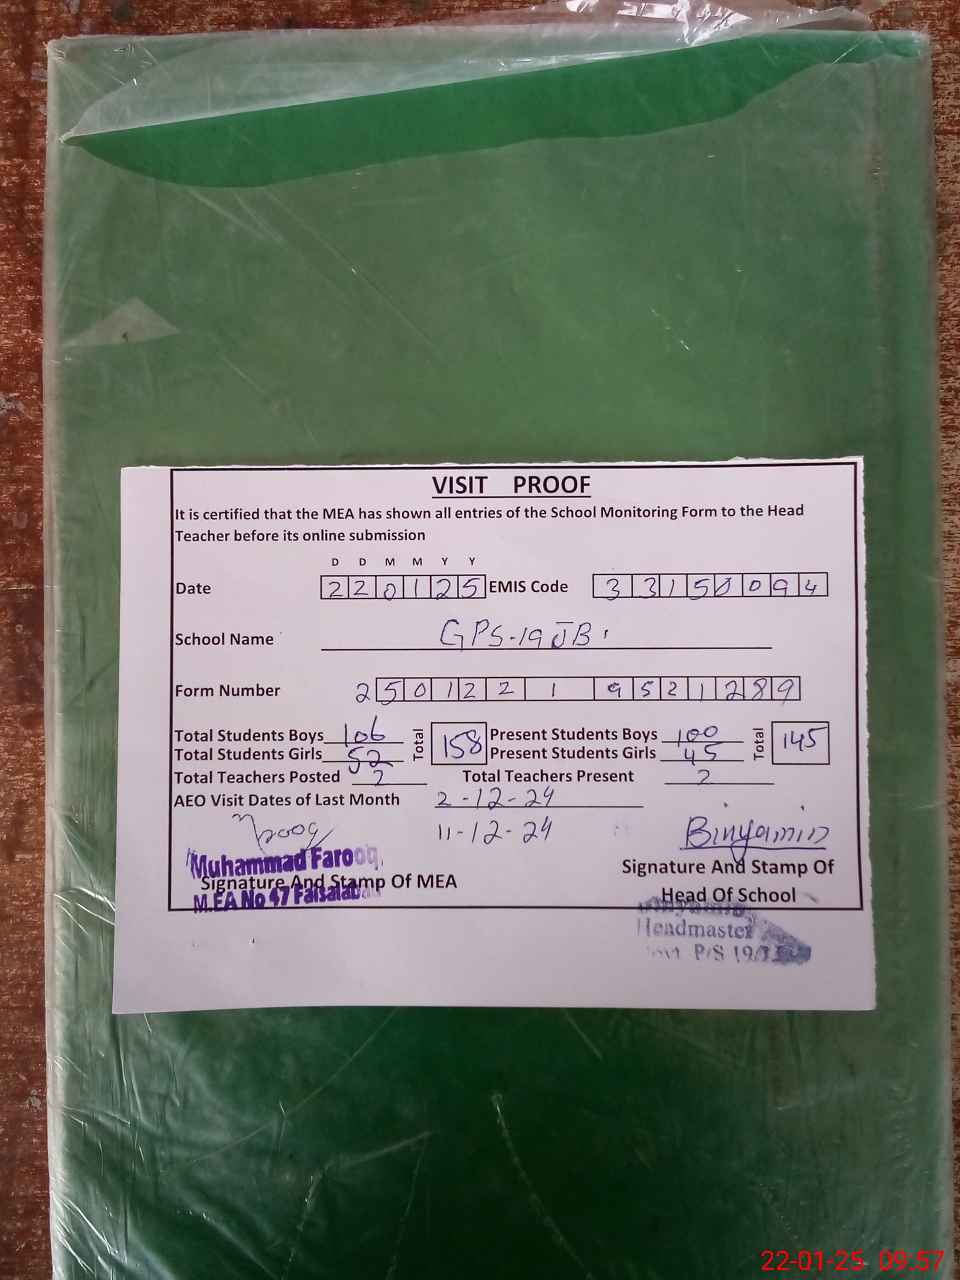 VISIT PROOF
It is certified that the MEA has shown all entries of the School Monitoring Form to the Head
Teacher before its online submission
D D M M Y Y
Date 220125 EMIS Code 33150094
School Name GPS-19 JB
Form Number 25012219521289
Total Students Boys 106 Total 158 Present Students Boys 100 Total 145
Total Students Girls 52 Present Students Girls 45
Total Teachers Posted 2 Total Teachers Present 2
AEO Visit Dates of Last Month 2-12-24
11-12-24
Binyamin
Muhammad Farooq
Signature And Stamp Of MEA
M.EA No 47 Faisalabad
Signature And Stamp Of
Head Of School
Headmaster
P/S 19/
22-01-25 09:57